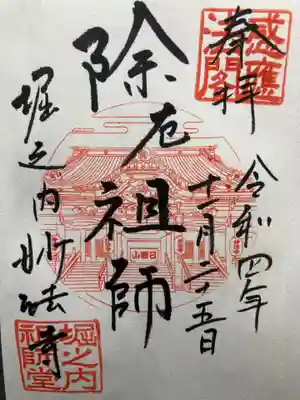 奉拝
令和四年
十一月二十五日
除厄祖師
堀之内妙法寺
感應
法閣
山圓日
堀之内
祖師堂